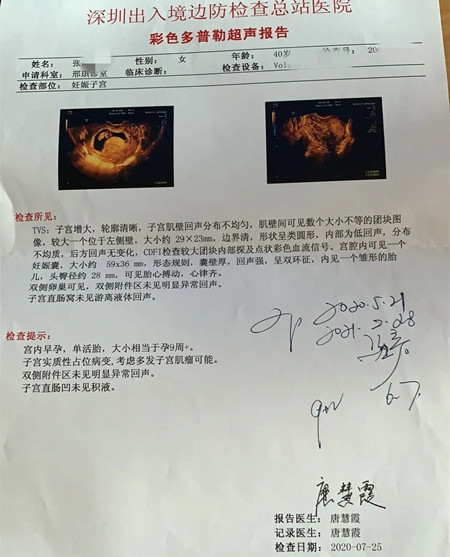 深圳出入境边防检查总站医院
彩色多普勒超声报告
姓名： 张 性别： 女 年龄： 40岁 检查号： 20
申请科室： 邢琪诊室 临床诊断： 检查设备： Volu
检查部位： 妊娠子宫
检查所见：
TVS：子宫增大，轮廓清晰，子宫肌壁回声分布不均匀，肌壁间可见数个大小不等的团块图
像，较大一个位于左侧壁，大小约 29×23mm，边界清，形状呈类圆形，内部为低回声，分布
不均质，后方回声无变化，CDFI检查较大团块内部探及点状彩色血流信号。宫腔内可见一个
妊娠囊，大小约 59x36 mm，形态规则，囊壁厚，回声强，呈双环征，内见一个雏形的胎
儿，头臀径约 28 mm，可见胎心搏动，心律齐。
双侧卵巢可见，双侧附件区未见明显异常回声。
子宫直肠窝未见游离液体回声。
检查提示：
宫内早孕，单活胎，大小相当于孕9周+。
子宫实质性占位病变，考虑多发子宫肌瘤可能。
双侧附件区未见明显异常回声。
子宫直肠凹未见积液。
2020.5.21
2021.2.28
9w
6.7
唐慧霞
报告医生： 唐慧霞
记录医生： 唐慧霞
检查日期： 2020-07-25